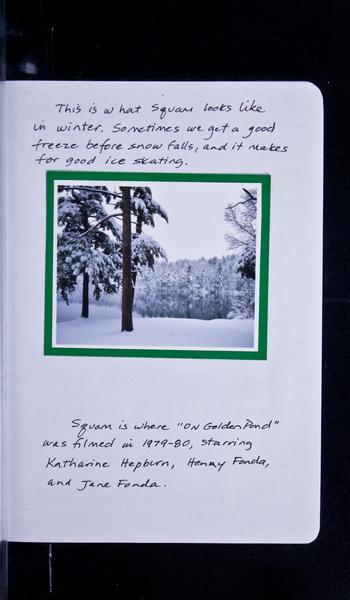 This is what Squam looks like
in winter. Sometimes we get a good
freeze before snow falls, and it makes
for good ice skating.
Squam is where "ON Golden Pond"
was filmed in 1979-80, starring
Katharine Hepburn, Henry Fonda,
and Jane Fonda.